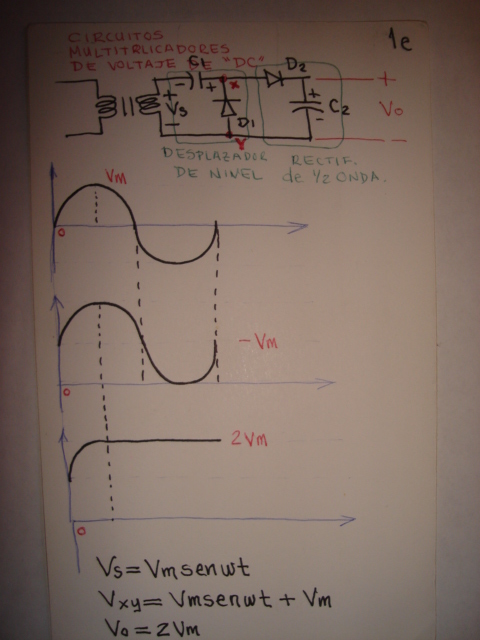 CIRCUITOS
MULTITRLICADORES
DE VOLTAJE DE "DC"
1e
C1
D2
- +
x
+
+
Vs
D1
+
C2
Vo
-
-
-
Y
DESPLAZADOR
DE NIVEL
RECTIF.
de 1/2 ONDA.
Vm
o
-Vm
o
2Vm
o
Vs = Vmsenwt
Vxy = Vmsenwt + Vm
Vo = 2Vm